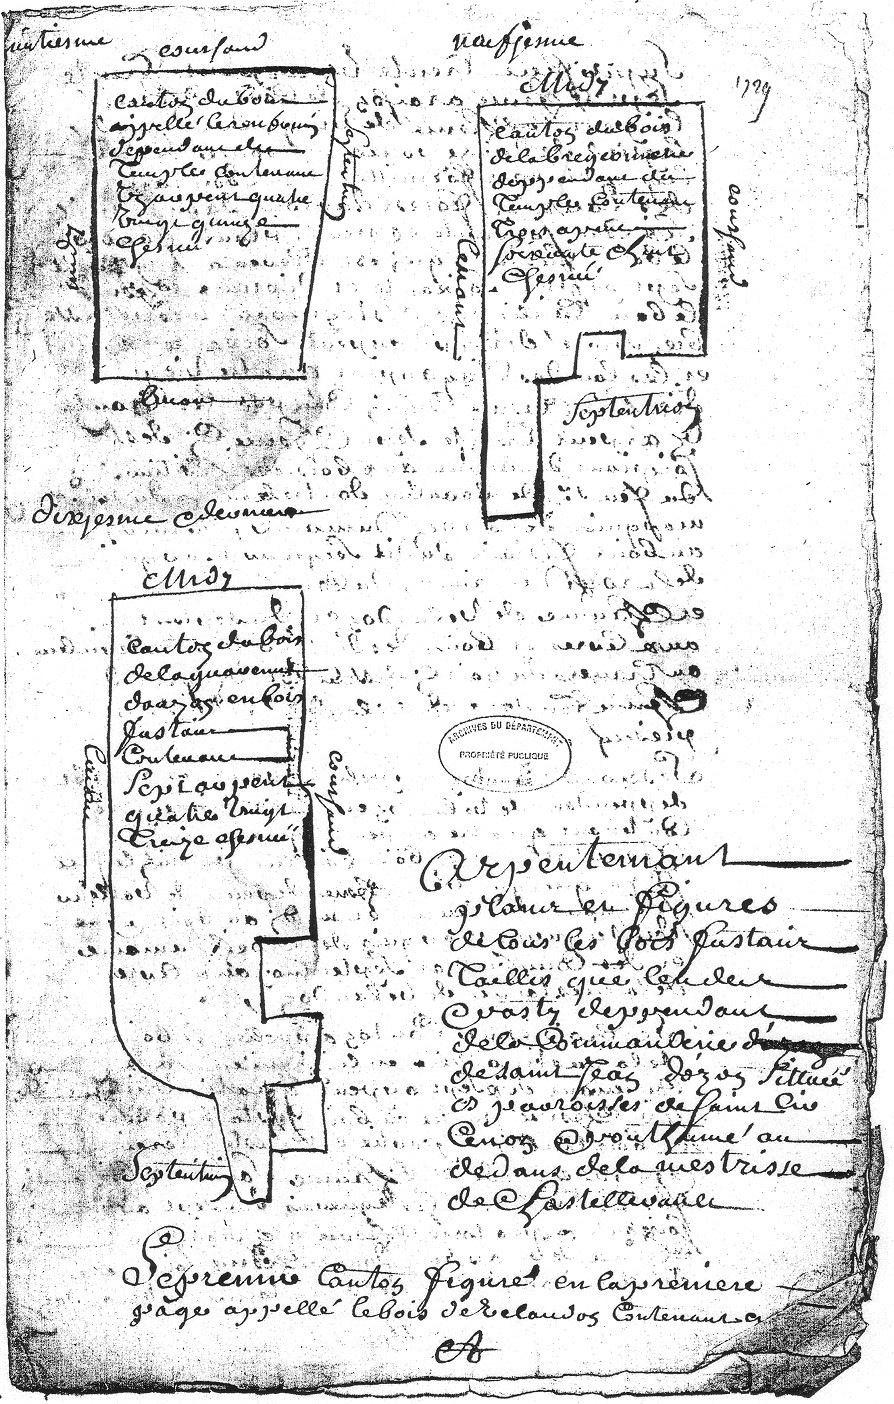 huitiesme
couchand
canton du bois
appellé
dependant du
Temple contenant
arpent quatre
vingt quinze
chesnéé
Septentrion
Levant
neufiesme
Midy
1729
canton du bois
de la
deppendant du
Temple contenan
Trois arpens
soixante
chesnéé
couchand
Levant
Septentrion
dixiesme & dernière
Midy
canton du bois
de la
d'auzon en bois
fustaie
Contenant
Sept arpent
quatre vingt
Treize chesnéé
couchand
Levant
Septentrion
ARCHIVES DU DÉPARTEMENT
PROPRIÉTÉ PUBLIQUE
Arpentemant
plans et figures
de tous les bois fustaie
Taillis que landes
& gasty deppendant
de la Commanderie
de saint Jean d'ozon sittuéé
es parroisses de saint Cir
Cenon & vouthumé au
dedans de la mestrisse
de Chastellerault
Le premier Canton figuré en la premiere
page appellé le bois de Contenant